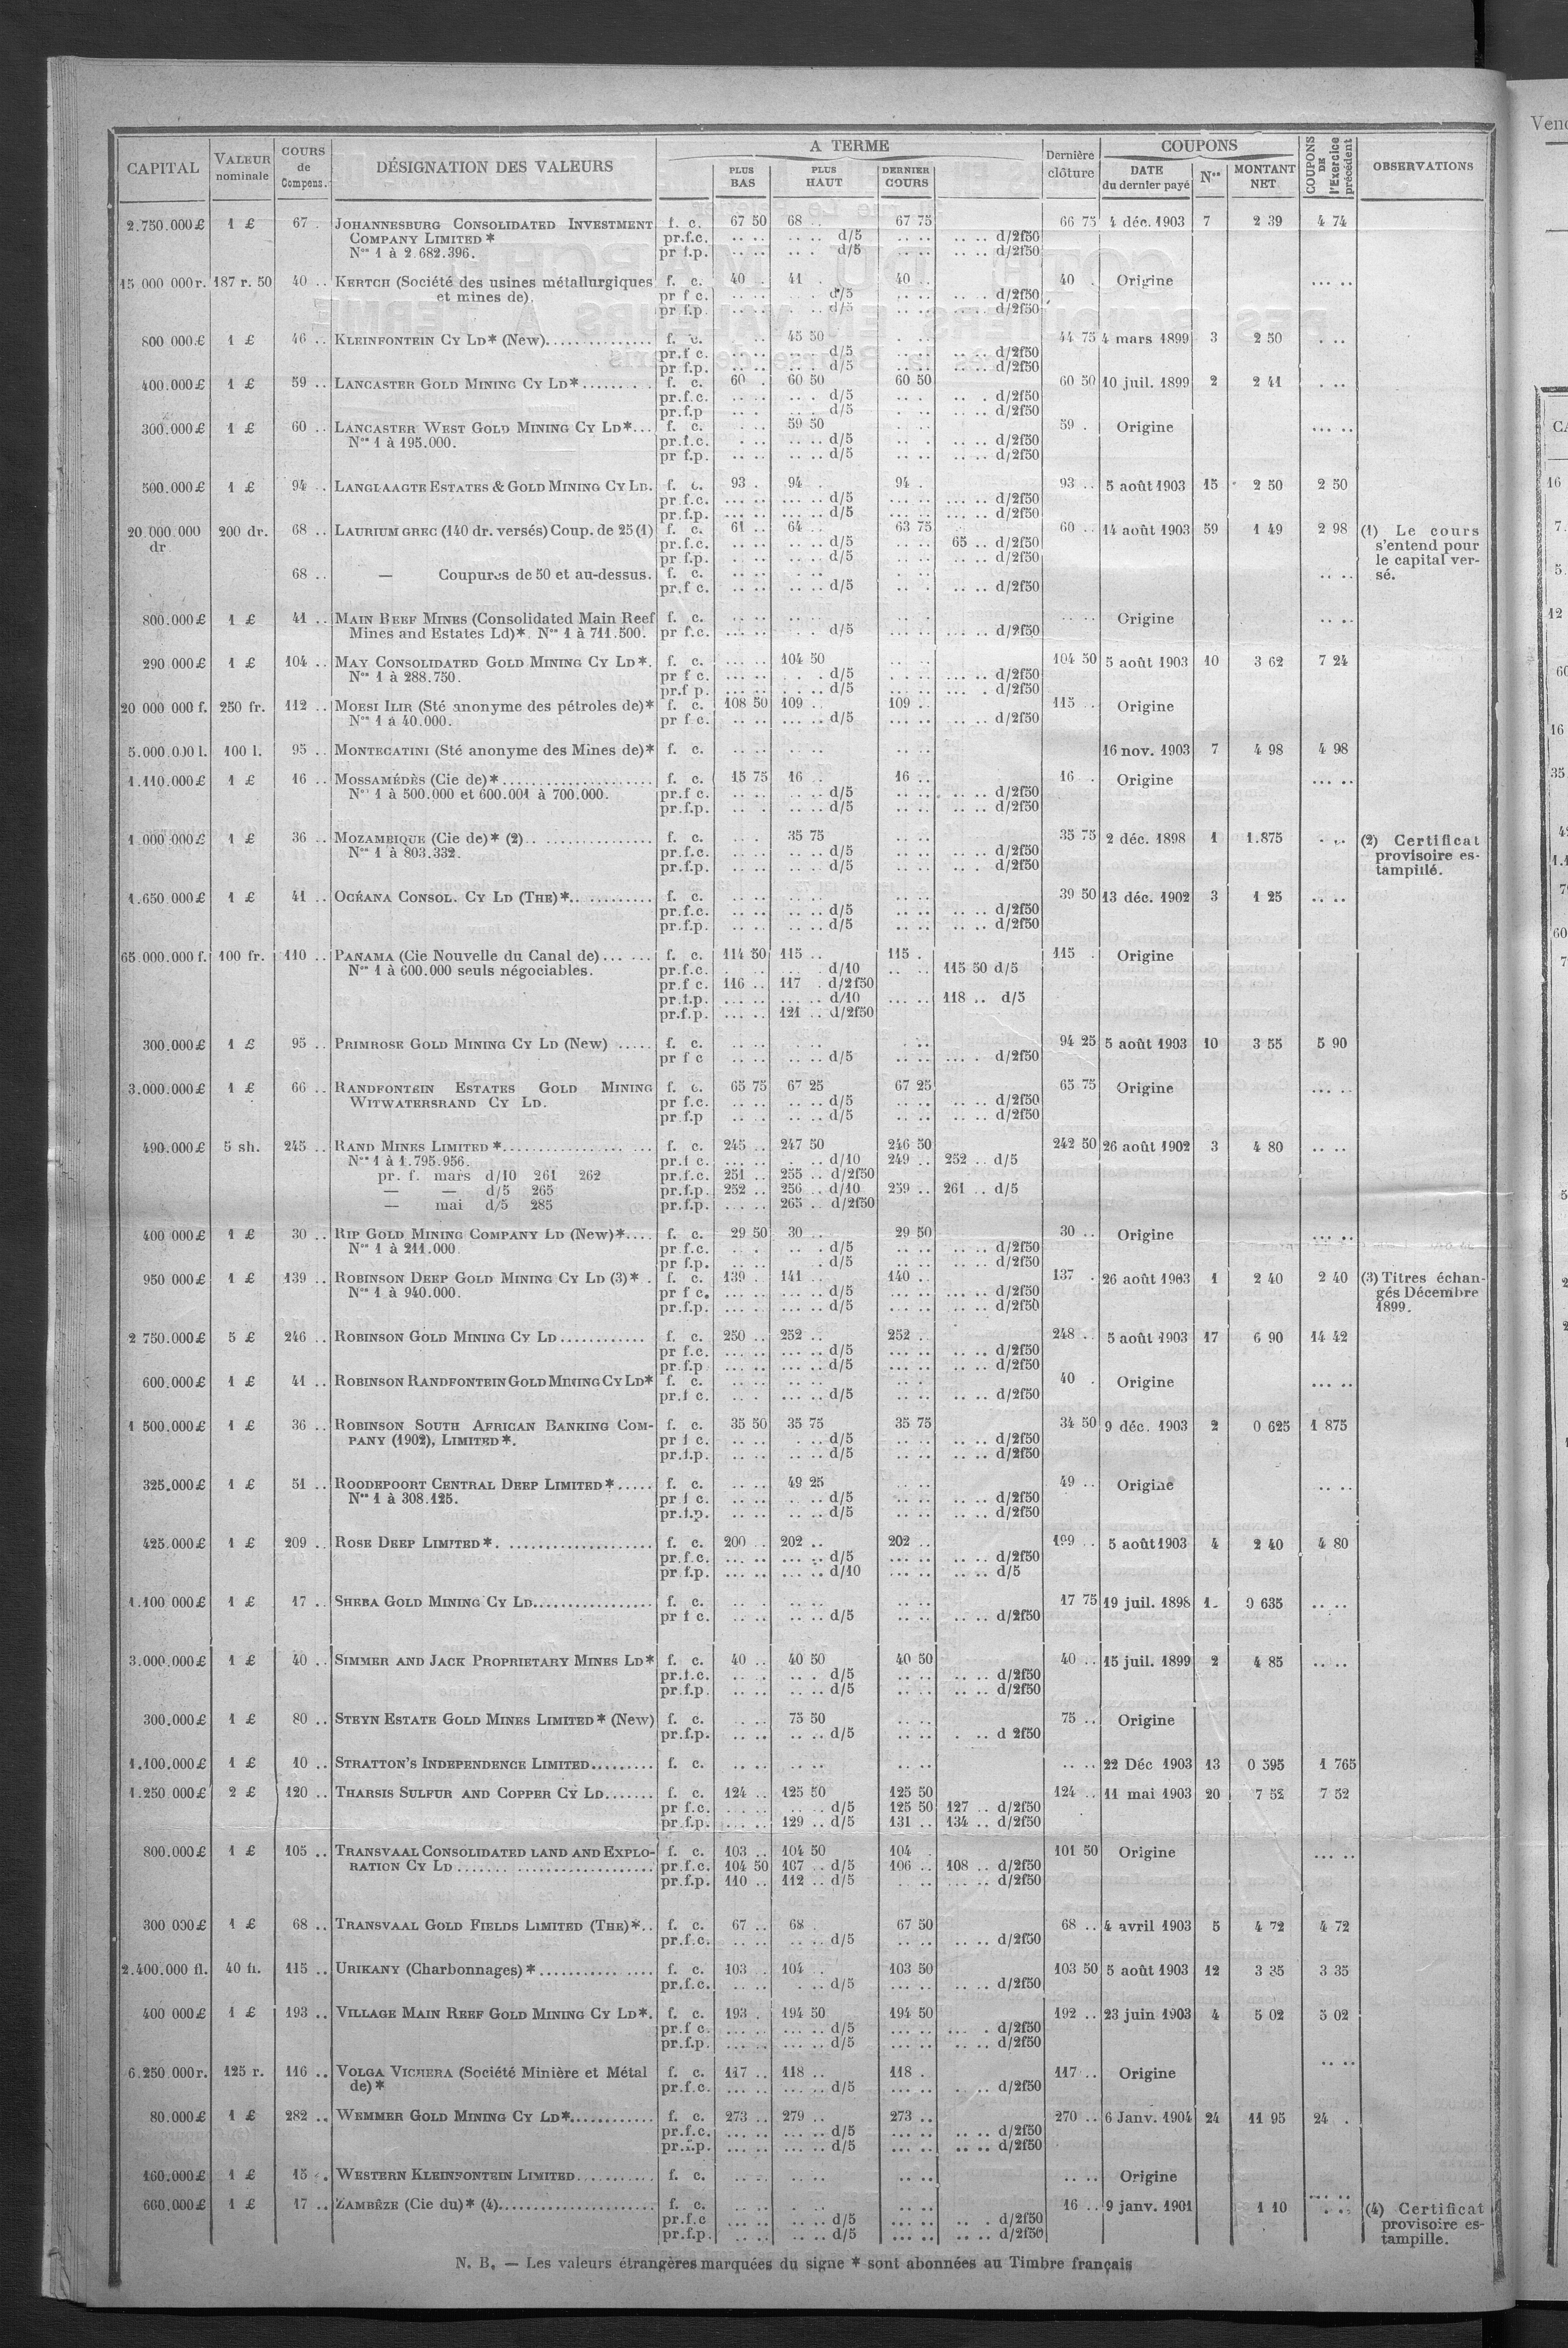 CAPITAL | VALEUR nominale | COURS de Compens. | DÉSIGNATION DES VALEURS | A TERME | PLUS BAS | PLUS HAUT | DERNIER COURS | Dernière clôture | COUPONS | DATE du dernier payé | Nos | MONTANT NET | COUPONS DE l'Exercice précédent | OBSERVATIONS
2.750.000£ 1 £ 67 . JOHANNESBURG CONSOLIDATED INVESTMENT f. c. 67 50 68 .. 67 75 66 75 4 déc. 1903 7 2 39 4 74
COMPANY LIMITED * pr.f.c. .. .. .. .. d/5 .. .. .. .. d/2f50
Nos 1 à 2.682.396. pr f.p. .. .. .. . d/5 .. .. .. .. d/2f50
15 000 000r. 187 r. 50 40 .. KERTCH (Société des usines métallurgiques f. c. 40 . 41 . 40 .. 40 . Origine ... ..
et mines de). pr f c. d/5 d/2f50
pr f.p. d/5 d/2f50
800 000.£ 1 £ 46 .. KLEINFONTEIN CY LD* (New)............... f. c. 45 50 44 75 4 mars 1899 3 2 50 . ..
pr.f c. d/5 d/2f50
pr f.p. d/5 d/2f50
400.000£ 1 £ 59 .. LANCASTER GOLD MINING CY LD*......... f. c. 60 . 60 50 60 50 60 50 10 juil. 1899 2 2 41 . ..
pr.f.c. d/5 d/2f50
pr.f.p d/5 d/2f50
300.000£ 1 £ 60 .. LANCASTER WEST GOLD MINING CY LD*... f. c. 59 50 59 . Origine ... ..
Nos 1 à 195.000. pr.f.c. d/5 d/2f50
pr f.p. d/5 d/2f50
500.000£ 1 £ 94 .. LANGLAAGTE ESTATES & GOLD MINING CY LD. f. c. 93 . 94 . 94 . 93 .. 5 août 1903 15 2 50 2 50
pr f.c. d/5 d/2f50
pr.f.p. d/5 d/2f50
20.000.000 200 dr. 68 .. LAURIUM GREC (140 dr. versés) Coup. de 25 (1) f. c. 61 .. 64 .. 63 75 60 .. 14 août 1903 59 1 49 2 98 (1) Le cours
dr pr.f.c. d/5 65 .. d/2f50 s'entend pour
pr f.p. d/5 d/2f50 le capital ver-
68 .. — Coupures de 50 et au-dessus. f. c. .. .. sé.
pr.f c. d/5 d/2f50
800.000£ 1 £ 41 .. MAIN REEF MINES (Consolidated Main Reef f. c. Origine .. ..
Mines and Estates Ld)*. Nos 1 à 711.500. pr f.c. d/5 d/2f50
290 000£ 1 £ 104 .. MAY CONSOLIDATED GOLD MINING CY LD*. f. c. 104 50 104 50 5 août 1903 10 3 62 7 24
Nos 1 à 288.750. pr f c. d/5 d/2f50
pr.f p. d/5 d/2f50
20 000 000 f. 250 fr. 112 .. MOESI ILIR (Sté anonyme des pétroles de)* f. c. 108 50 109 . 109 .. 115 .. Origine
Nos 1 à 40.000. pr f c. d/5 d/2f50
5.000.000 l. 100 l. 95 .. MONTECATINI (Sté anonyme des Mines de)* f. c. 16 nov. 1903 7 4 98 4 98
1.110.000£ 1 £ 16 .. MOSSAMÉDÈS (Cie de)*..................... f. c. 15 75 16 .. 16 .. 16 . Origine ... ..
Nos 1 à 500.000 et 600.001 à 700.000. pr.f c. d/5 d/2f50
pr.f.p. d/5 d/2f50
1.000 000£ 1 £ 36 .. MOZAMBIQUE (Cie de)* (2).................. f. c. 35 75 35 75 2 déc. 1898 1 1.875 . .. (2) Certificat
Nos 1 à 803.332. pr.f.c. d/5 d/2f50 provisoire es-
pr.f.p. d/5 d/2f50 tampillé.
1.650.000£ 1 £ 41 .. OCÉANA CONSOL. CY LD (THE)*............ f. c. 39 50 13 déc. 1902 3 1 25 .. ..
pr.f.c. d/5 d/2f50
pr.f.p. d/5 d/2f50
65.000.000 f. 100 fr. 110 .. PANAMA (Cie Nouvelle du Canal de)...... f. c. 114 50 115 .. 115 . 115 . Origine
Nos 1 à 600.000 seuls négociables. pr.f.c. d/10 115 50 d/5
pr.f c. 116 .. 117 . d/2f50
pr.f.p. d/10 118 .. d/5
pr.f.p. 121 .. d/2f50
300.000£ 1 £ 95 .. PRIMROSE GOLD MINING CY LD (New) ..... f. c. 94 25 5 août 1903 10 3 55 5 90
pr f c d/5 d/2f50
3.000.000£ 1 £ 66 .. RANDFONTEIN ESTATES GOLD MINING f. c. 65 75 67 25 67 25 65 75 Origine ... ..
WITWATERSRAND CY LD. pr f.c. d/5 d/2f50
pr f.p d/5 d/2f50
490.000£ 5 sh. 245 .. RAND MINES LIMITED *.................. f. c. 245 .. 247 50 246 50 242 50 26 août 1902 3 4 80 .. ..
Nos 1 à 1.795.956. pr.f c. d/10 249 .. 252 .. d/5
pr. f. mars d/10 261 262 pr.f.c. 251 .. 255 .. d/2f50
— — d/5 265 pr.f.p. 252 .. 256 .. d/10 259 .. 261 .. d/5
— mai d/5 285 pr.f.p. 265 .. d/2f50
400 000£ 1 £ 30 .. RIP GOLD MINING COMPANY LD (New)*.... f. c. 29 50 30 .. 29 50 30 .. Origine ... ..
Nos 1 à 211.000. pr f.c. d/5 d/2f50
pr f.p. d/5 d/2f50
950 000£ 1 £ 139 .. ROBINSON DEEP GOLD MINING CY LD (3)* . f. c. 139 . 141 .. 140 .. 137 . 26 août 1903 1 2 40 2 40 (3) Titres échan-
Nos 1 à 940.000. pr f c. d/5 d/2f50 gés Décembre
pr.f.p. d/5 d/2f50 1899.
2 750.000£ 5 £ 246 .. ROBINSON GOLD MINING CY LD............ f. c. 250 .. 252 .. 252 . 248 .. 5 août 1903 17 6 90 14 42
pr f.c. d/5 d/2f50
pr.f.p d/5 d/2f50
600.000£ 1 £ 41 .. ROBINSON RANDFONTEIN GOLD MINING CY LD* f. c. 40 . Origine ... ..
pr.f c. d/5 d/2f50
1 500.000£ 1 £ 36 .. ROBINSON SOUTH AFRICAN BANKING COM- f. c. 35 50 35 75 35 75 34 50 9 déc. 1903 2 0 625 1 875
PANY (1902), LIMITED*. pr f c. d/5 d/2f50
pr.f.p. d/5 d/2f50
325.000£ 1 £ 51 .. ROODEPOORT CENTRAL DEEP LIMITED*..... f. c. 49 25 49 .. Origine .. ..
Nos 1 à 308.125. pr f c. d/5 d/2f50
pr.f.p. d/5 d/2f50
425.000£ 1 £ 209 .. ROSE DEEP LIMITED*. ................... f. c. 200 .. 202 .. 202 .. 199 .. 5 août 1903 4 2 40 4 80
pr.f.c. d/5 d/2f50
pr f.p. d/10 d/5
1.100 000£ 1 £ 17 .. SHEBA GOLD MINING CY LD................ f. c. 17 75 19 juil. 1898 1. 0 635 .. ..
pr f c. d/5 d/2f50
3.000.000£ 1 £ 40 .. SIMMER AND JACK PROPRIETARY MINES LD* f. c. 40 .. 40 50 40 50 40 .. 15 juil. 1899 2 4 85 .. ..
pr.f.c. d/5 d/2f50
pr.f.p. d/5 d/2f50
300.000£ 1 £ 80 .. STEYN ESTATE GOLD MINES LIMITED* (New) f. c. 75 50 75 .. Origine
pr.f.p. d/5 d 2f50
1.100.000£ 1 £ 10 .. STRATTON'S INDEPENDENCE LIMITED......... f. c. .. .. 22 Déc 1903 13 0 595 1 765
1.250 000£ 2 £ 120 .. THARSIS SULFUR AND COPPER CY LD....... f. c. 124 .. 125 50 125 50 124 .. 11 mai 1903 20 7 52 7 52
pr f.c. d/5 125 50 127 .. d/2f50
pr f.p. 129 .. d/5 131 .. 134 .. d/2f50
800.000£ 1 £ 105 .. TRANSVAAL CONSOLIDATED LAND AND EXPLO- f. c. 103 .. 104 50 104 . 101 50 Origine ... ..
RATION CY LD ............................ pr.f.c. 104 50 107 .. d/5 106 .. 108 .. d/2f50
pr.f.p. 110 .. 112 .. d/5 d/2f50
300 000£ 1 £ 68 .. TRANSVAAL GOLD FIELDS LIMITED (THE)*.. f. c. 67 .. 68 . 67 50 68 .. 4 avril 1903 5 4 72 4 72
pr.f.c. d/5 d/2f50
2.400.000 fl. 40 fl. 115 .. URIKANY (Charbonnages)*............... f. c. 103 . 104 . 103 50 103 50 5 août 1903 12 3 35 3 35
pr.f.c. d/5 d/2f50
400 000£ 1 £ 193 .. VILLAGE MAIN REEF GOLD MINING CY LD*. f. c. 193 . 194 50 194 50 192 .. 23 juin 1903 4 5 02 5 02
pr.f c. d/5 d/2f50
pr.f.p. d/5 d/2f50
6.250.000r. 125 r. 116 .. VOLGA VICHERA (Société Minière et Métal f. c. 117 .. 118 .. 118 . 117 .. Origine .. ..
de)* pr.f.c. d/5 d/2f50
80.000£ 1 £ 282 .. WEMMER GOLD MINING CY LD*............ f. c. 273 .. 279 .. 273 .. 270 .. 6 Janv. 1904 24 11 95 24 .
pr.f.c. d/5 d/2f50
pr.f.p. d/5 d/2f50
160.000£ 1 £ 15 .. WESTERN KLEINFONTEIN LIMITED........... f. c. .. .. Origine
600.000£ 1 £ 17 .. ZAMBÈZE (Cie du)* (4)..................... f. c. 16 .. 9 janv. 1901 1 10 . .. (4) Certificat
pr.f.c d/5 d/2f50 provisoire es-
pr.f.p. d/5 d/2f50 tampille.
N. B. — Les valeurs étrangères marquées du signe * sont abonnées au Timbre français